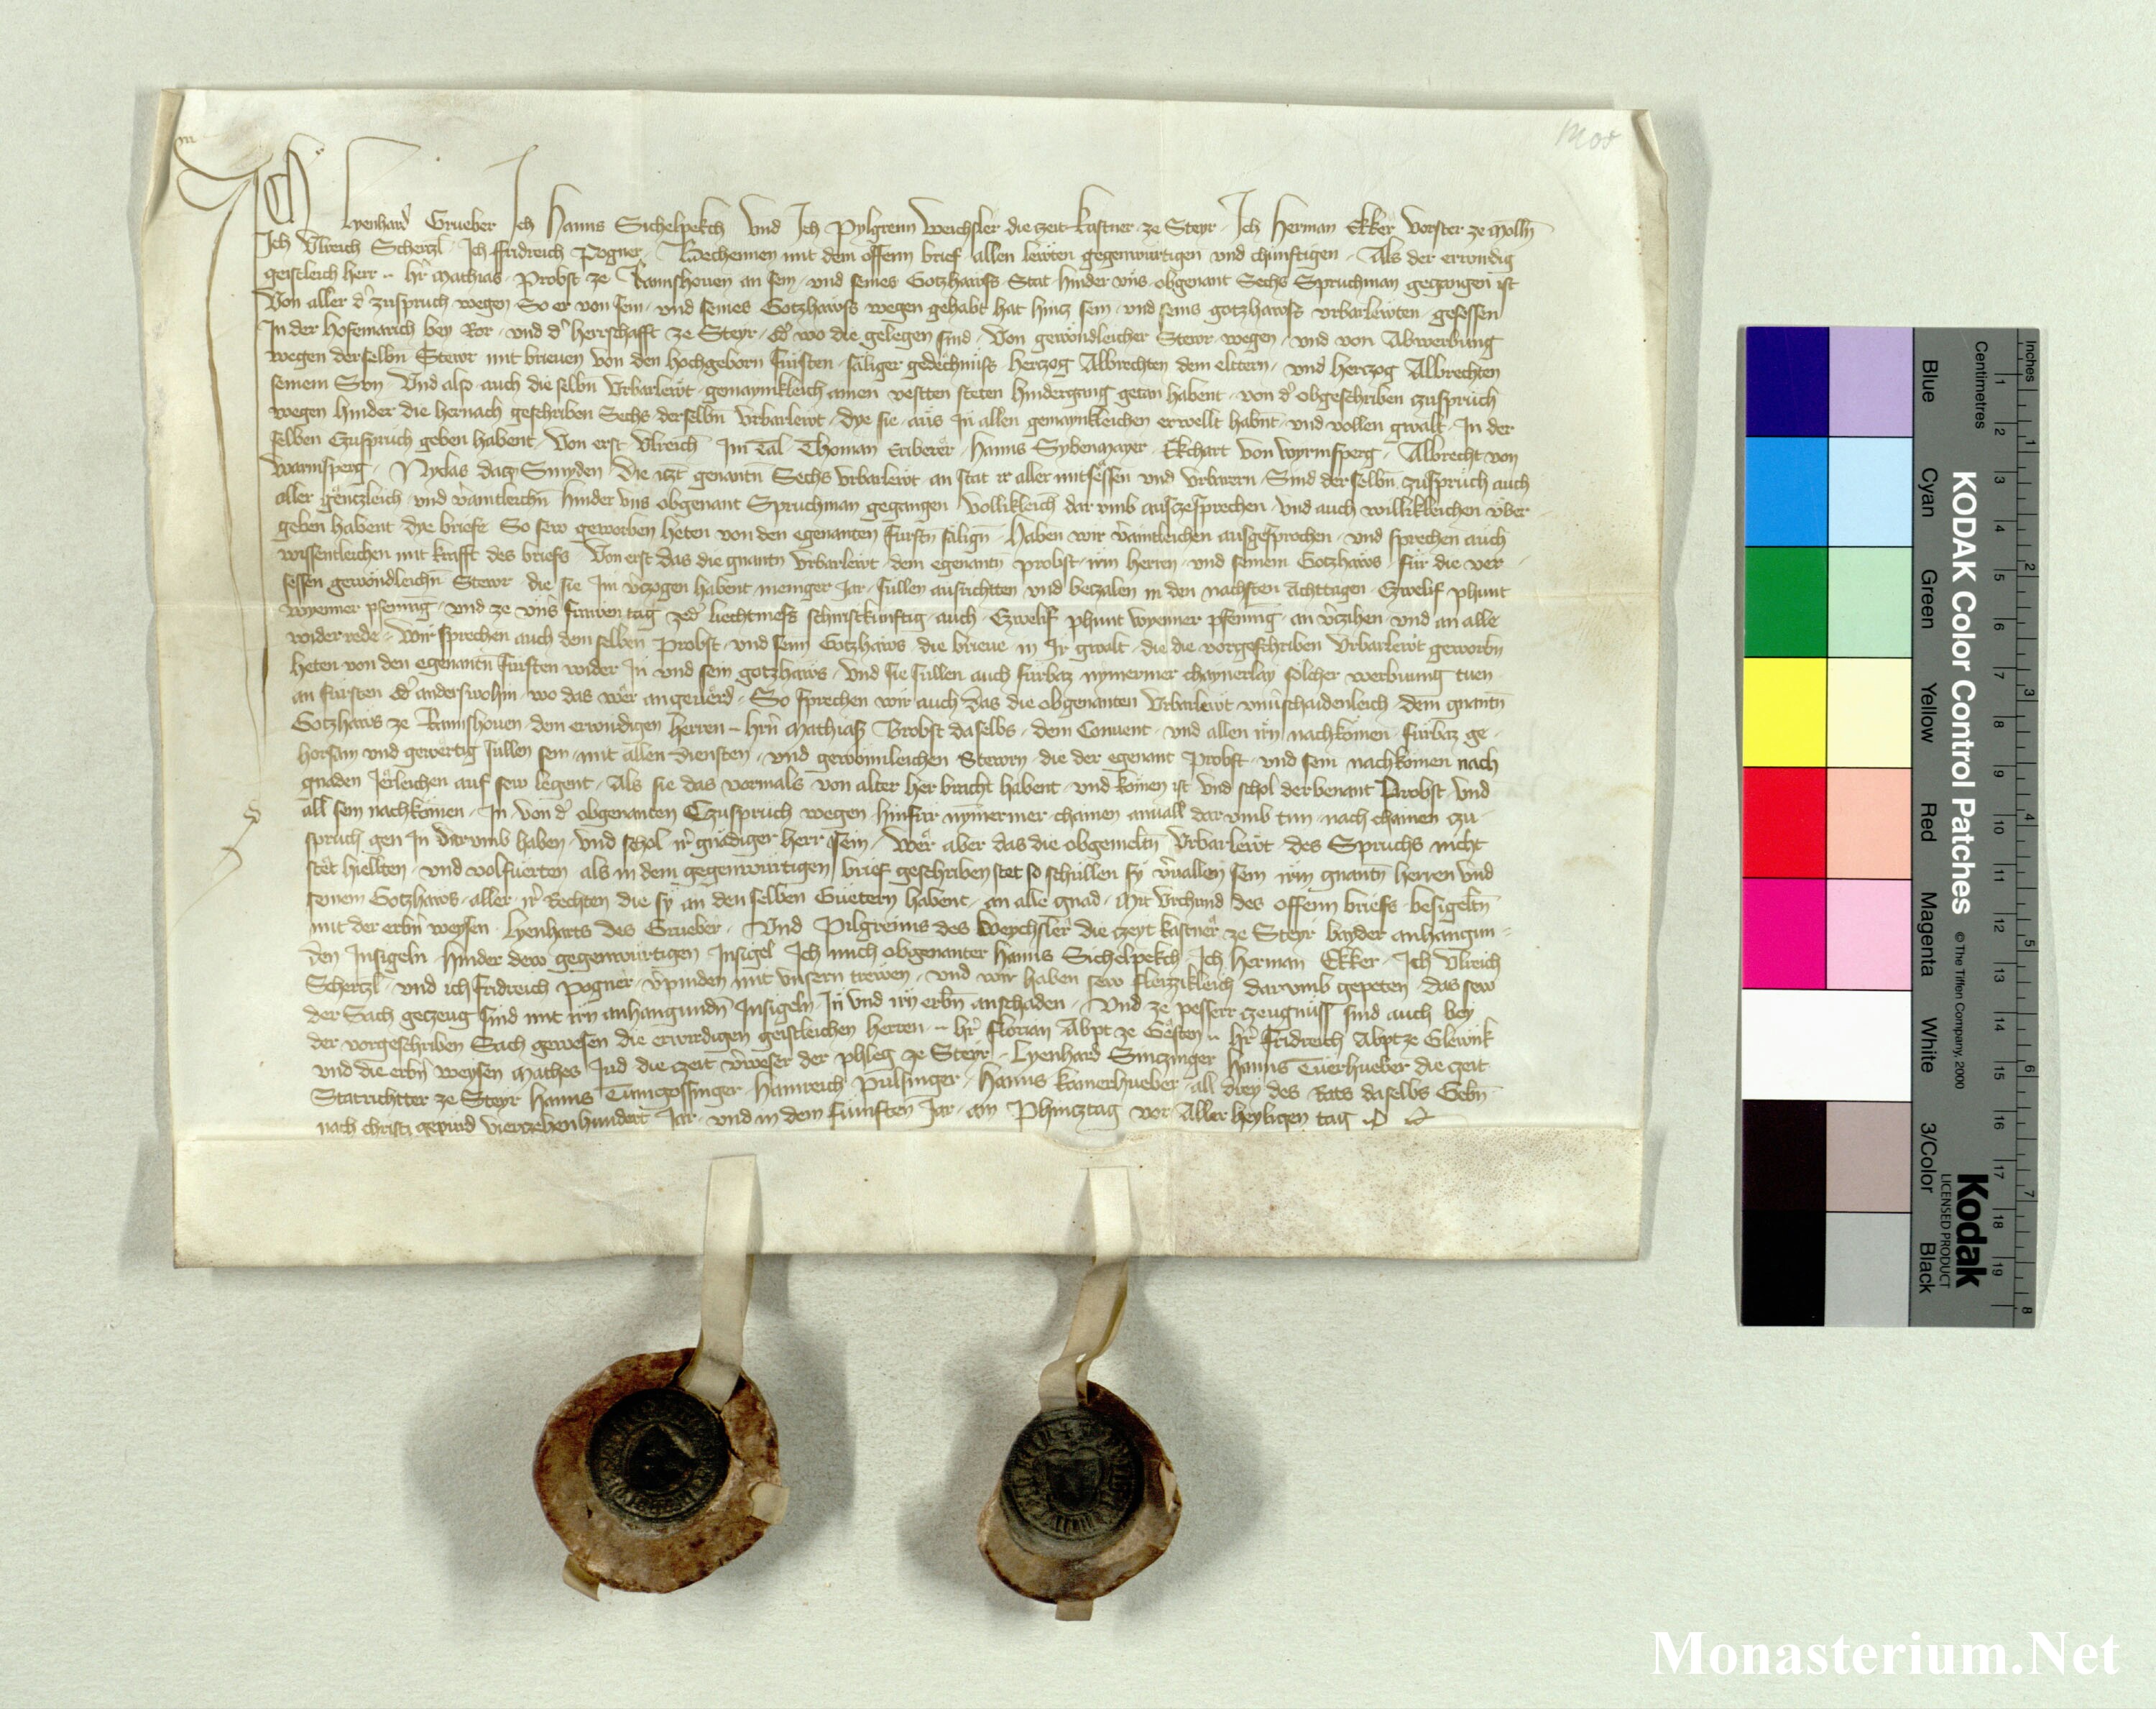 1405
Ich Lyenhard Grueber Ich Hanns Sichelpekch Und Ich Pylgreim Weichsler die zeit kastner ze Steyr Ich Herman Ekker Vorster ze Molln
Ich Ulreich Schertzl Ich ffridreich Pogner Bechennen mit dem offenn brief allen lewten gegenwurtigen und chunftigen Als der erwirdig
geistleich herr her Mathias Probst ze Ranshouen an sein und seines Gotzhawss Stat hinder uns obgenant Sechs Spruchman gegangen ist
Von aller der zuspruch wegen So er von sein und seines Gotzhawss wegen gehabt hat hincz sein und seins gotzhawss urbarlewten gesessen
In der hofemarich bey Ror und der herrschafft ze Steyr oder wo die gelegen sind Von gewondleicher Stewr wegen und von Abwerbung
wegen derselbn Stewr mit brieuen von den hochgeborn fursten saliger gedechnuss herczog Albrechten dem eltern und herczog Albrechten
seinem Svn Und also auch die selbn Urbarlewt gemaynikleich ainen vestten steten hindergang getan habent von der obgeschriben zuspruch
wegen hinder die hernach geschriben Sechs derselbn Urbarlewt dye sie aus In allen gemaynkleichen erwellt habnt und vollen gwalt In der
selben Czuspruch geben habent Von erst Ulreich Im Tal Thoman Hanns Sybenmayer Ekchart von Wyrmsperg Albrecht von
Warmsperg Nyclas dacz Smyden die iczt genantn Sechs Urbarlewt an stat ir aller mitsessen und Urbarern Sind derselbn zuspruch auch
aller genczleich und veraintleichn hinder uns obgenant Spruchman gegangen vollikleich dar umb ausczesprechen und auch willikleichen uber
geben habent dye briefe So sew geworben heten von den egenanten fursten salign Haben wir veraintleichen ausgesprochen und sprechen auch
wissentleichen mit krafft des briefs Von erst das die gnantn Urbarlewt dem egenantn probst irm herren und seinem Gotzhaws fur die ver
sessen gewondleichn Stewr die sie Im verczogen habent meniger Jar sullen ausrichtten und beczalen in den nachsten Achttagen Czwelif phunt
wyenner pfening und ze unser frawen tag zder liechtmess schiristkunftig auch Czwelif phunt wyenner pfening an verczihen und an alle
widerrede Wir sprechen auch dem selben Probst und seim Gotzhaws die brieue in Ir gwalt die die vorgeschriben Urbarlewt geworbn
heten von den egenantn fursten wider In und sein gotzhaws und sie sullen auch furbaz nymermer chaynerlay solcher werbung tuen
an fursten oder anderswohin wo das wer angeuerd So sprechen wir auch das die obgenanten Urbarlewt unuerschaidenleich dem gnantn
Gotzhaws ze Ranshouen dem erwirdigen herren hern Mathias Brobst daselbs dem Conuent und allen irn nachkomen furbaz ge
horsam und gewertig sullen sein mit allen diensten und gewonnleichen Stewrn die der egenant Probst und sein nachkomen nach
gnaden Jerleichen auf sew legent Als sie das vormals von alter her bracht habent und komen ist Und schol der benant Probst und
all sein nachkomen In von der obgenanten Czuspruch wegen hinfur nymermer chainen anuall darumb tun nach chainen czu
spruch gen In darumb haben und schol ir gnadiger herr sein Wer aber das die obgemeltn Urbarlewt des Spruchs nicht
stet hielten und volfuerten als in dem gegenwurtigen brief geschriben stet so schullen sy veruallen sein irm gnantn herren und
seinem Gotzhaws aller ir Rechten die sy an den selben Guetern habent an alle gnad Mit Urchund des offenn briefs besigeltn
mit der erbern weysen Lyenharts des Grueber Und Pilgreims des Weychsler die czeyt kastner ze Steyr bayder anhangun
den Insigeln hinder dew gegenwurtigen Insigel Ich mich obgenanter Hanns Sichelpekch Ich Herman Ekker Ich Ulreich
Schertzl und ich Fridreich Pogner verpinden mit unsern trewen und wir haben sew fleizzikleich darumb gepeten das sew
der Sach geczeug sind mit irn anhangundn Insigeln In und irn erbn anschaden Und ze pesserr czeugnuss sind auch bey
der vorgeschriben Sach gewesen die erwirdigen geistleichen herren her Florian Abpt ze Gersten her Fridreich Abpt ze Glewnk
und die erbern weysen Mathes die zeit verweser der phleg ze Steyr Lyenhard Sinczinger Hanns Tuerhueber die czeit
Statrichtter ze Steyr Hanns Hainreich Hanns all drey des Rats daselbs Gebn
nach christi gepurd Vierczehenhundert Jar und in dem funften Jar am Phincztag vor Aller heyligen tag
KODAK Color Control Patches © The Tiffen Company, 2000
Kodak
LICENSED PRODUCT
Blue Cyan Green Yellow Red Magenta White 3/Color Black
Inches 1 2 3 4 5 6 7 8
Centimetres 1 2 3 4 5 6 7 8 9 10 11 12 13 14 15 16 17 18 19
Monasterium.Net